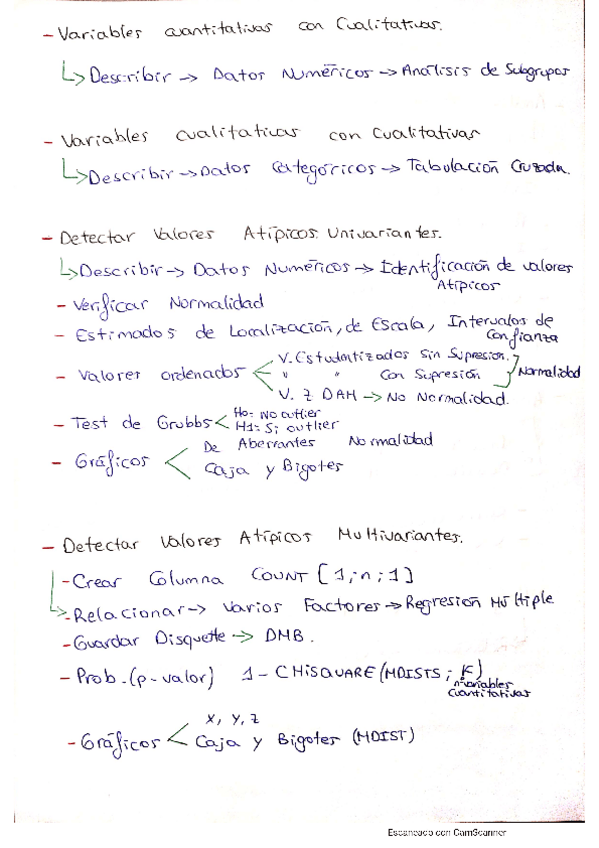 - Variables cuantitativas con Cualitativas.
↳ Describir → Datos Numéricos → Análisis de Subgrupos
- Variables cualitativas con Cualitativas
↳ Describir → Datos Categóricos → Tabulación Cruzada.
- Detectar Valores Atípicos Univariantes.
↳ Describir → Datos Numéricos → Identificación de valores
Atípicos
- Verificar Normalidad
- Estimados de Localización, de Escala, Intervalos de
Confianza
- Valores ordenados < V. Estudentizados Sin Supresión.
" " Con Supresión } Normalidad
V. Z DAM → No Normalidad.
- Test de Grubbs < Ho: No outlier
H1: Si outlier
- Gráficos < De Aberrantes Normalidad
Caja y Bigotes
- Detectar Valores Atípicos Multivariantes.
- Crear Columna COUNT [1;n;1]
↳ - Relacionar → Varios Factores → Regresión Múltiple
- Guardar Disquette → DMB.
- Prob. (p-valor) 1 - CHISQUARE (MDISTS; K)
nºvariables
cuantitativas
- Gráficos < X, Y, Z
Caja y Bigotes (MDIST)
Escaneado con CamScanner